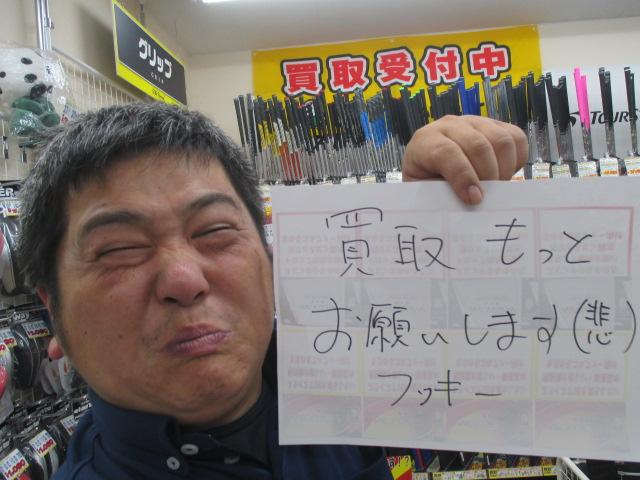 グリップ
GRIP
買取受付中
TOURS
買取 もっと
お願いします(悲)
フッキー